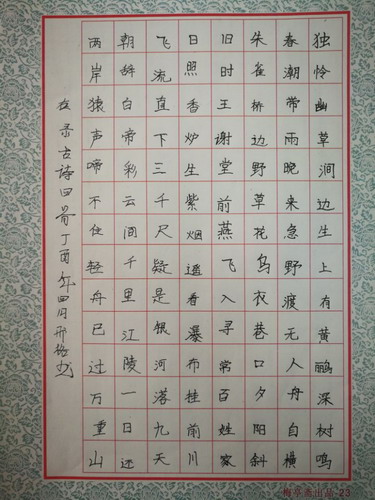 独怜幽草涧边生上有黄鹂深树鸣
春潮带雨晚来急野渡无人舟自横
朱雀桥边野草花乌衣巷口夕阳斜
旧时王谢堂前燕飞入寻常百姓家
日照香炉生紫烟遥看瀑布挂前川
飞流直下三千尺疑是银河落九天
朝辞白帝彩云间千里江陵一日还
两岸猿声啼不住轻舟已过万重山
录古诗四首丁酉年四月邢
出品-23